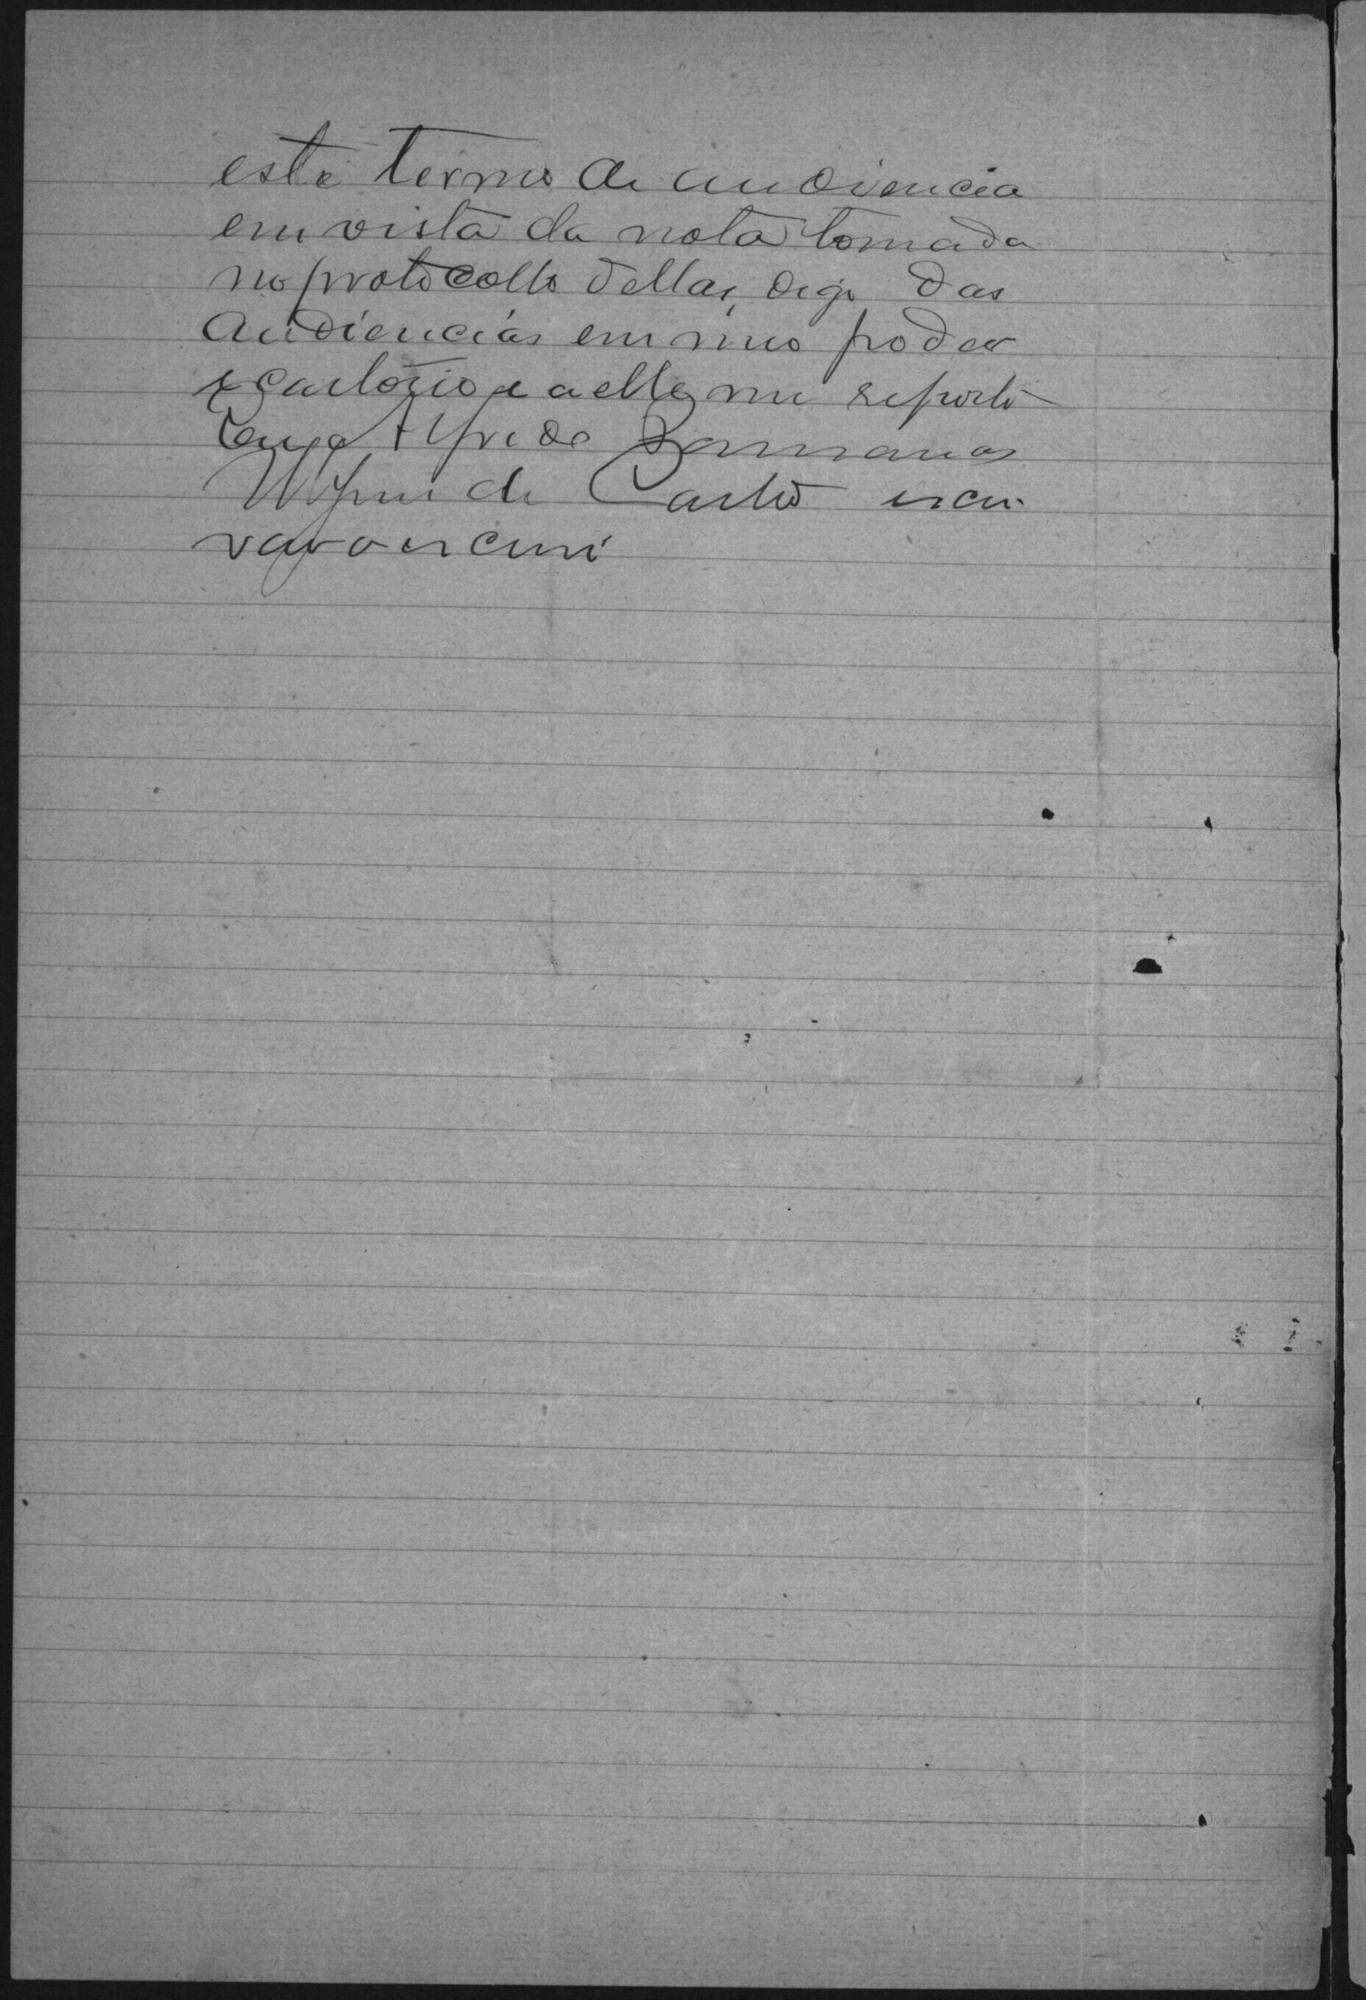 este termo de audiencia
em vista da nota tomada
no protocollo dellas, digo das
Audiencias em meu poder
e cartorio e a elle me reporto
Eu, Alfredo
de Castro escri
vão o escrevi